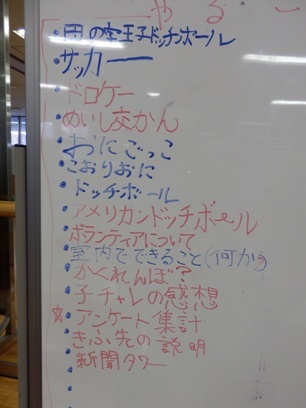 やるこ
・円の宝王子ドッチボール
・サッカー
・ドロケー
・めいし交かん
・おにごっこ
・こおりおに
・ドッチボール
・アメリカンドッチボール
・ボランティアについて
・室内でできること(何か?)
・かくれんぼ?
・子チャレの感想
☆・アンケート集計
・きふ先の説明
・新聞タワー